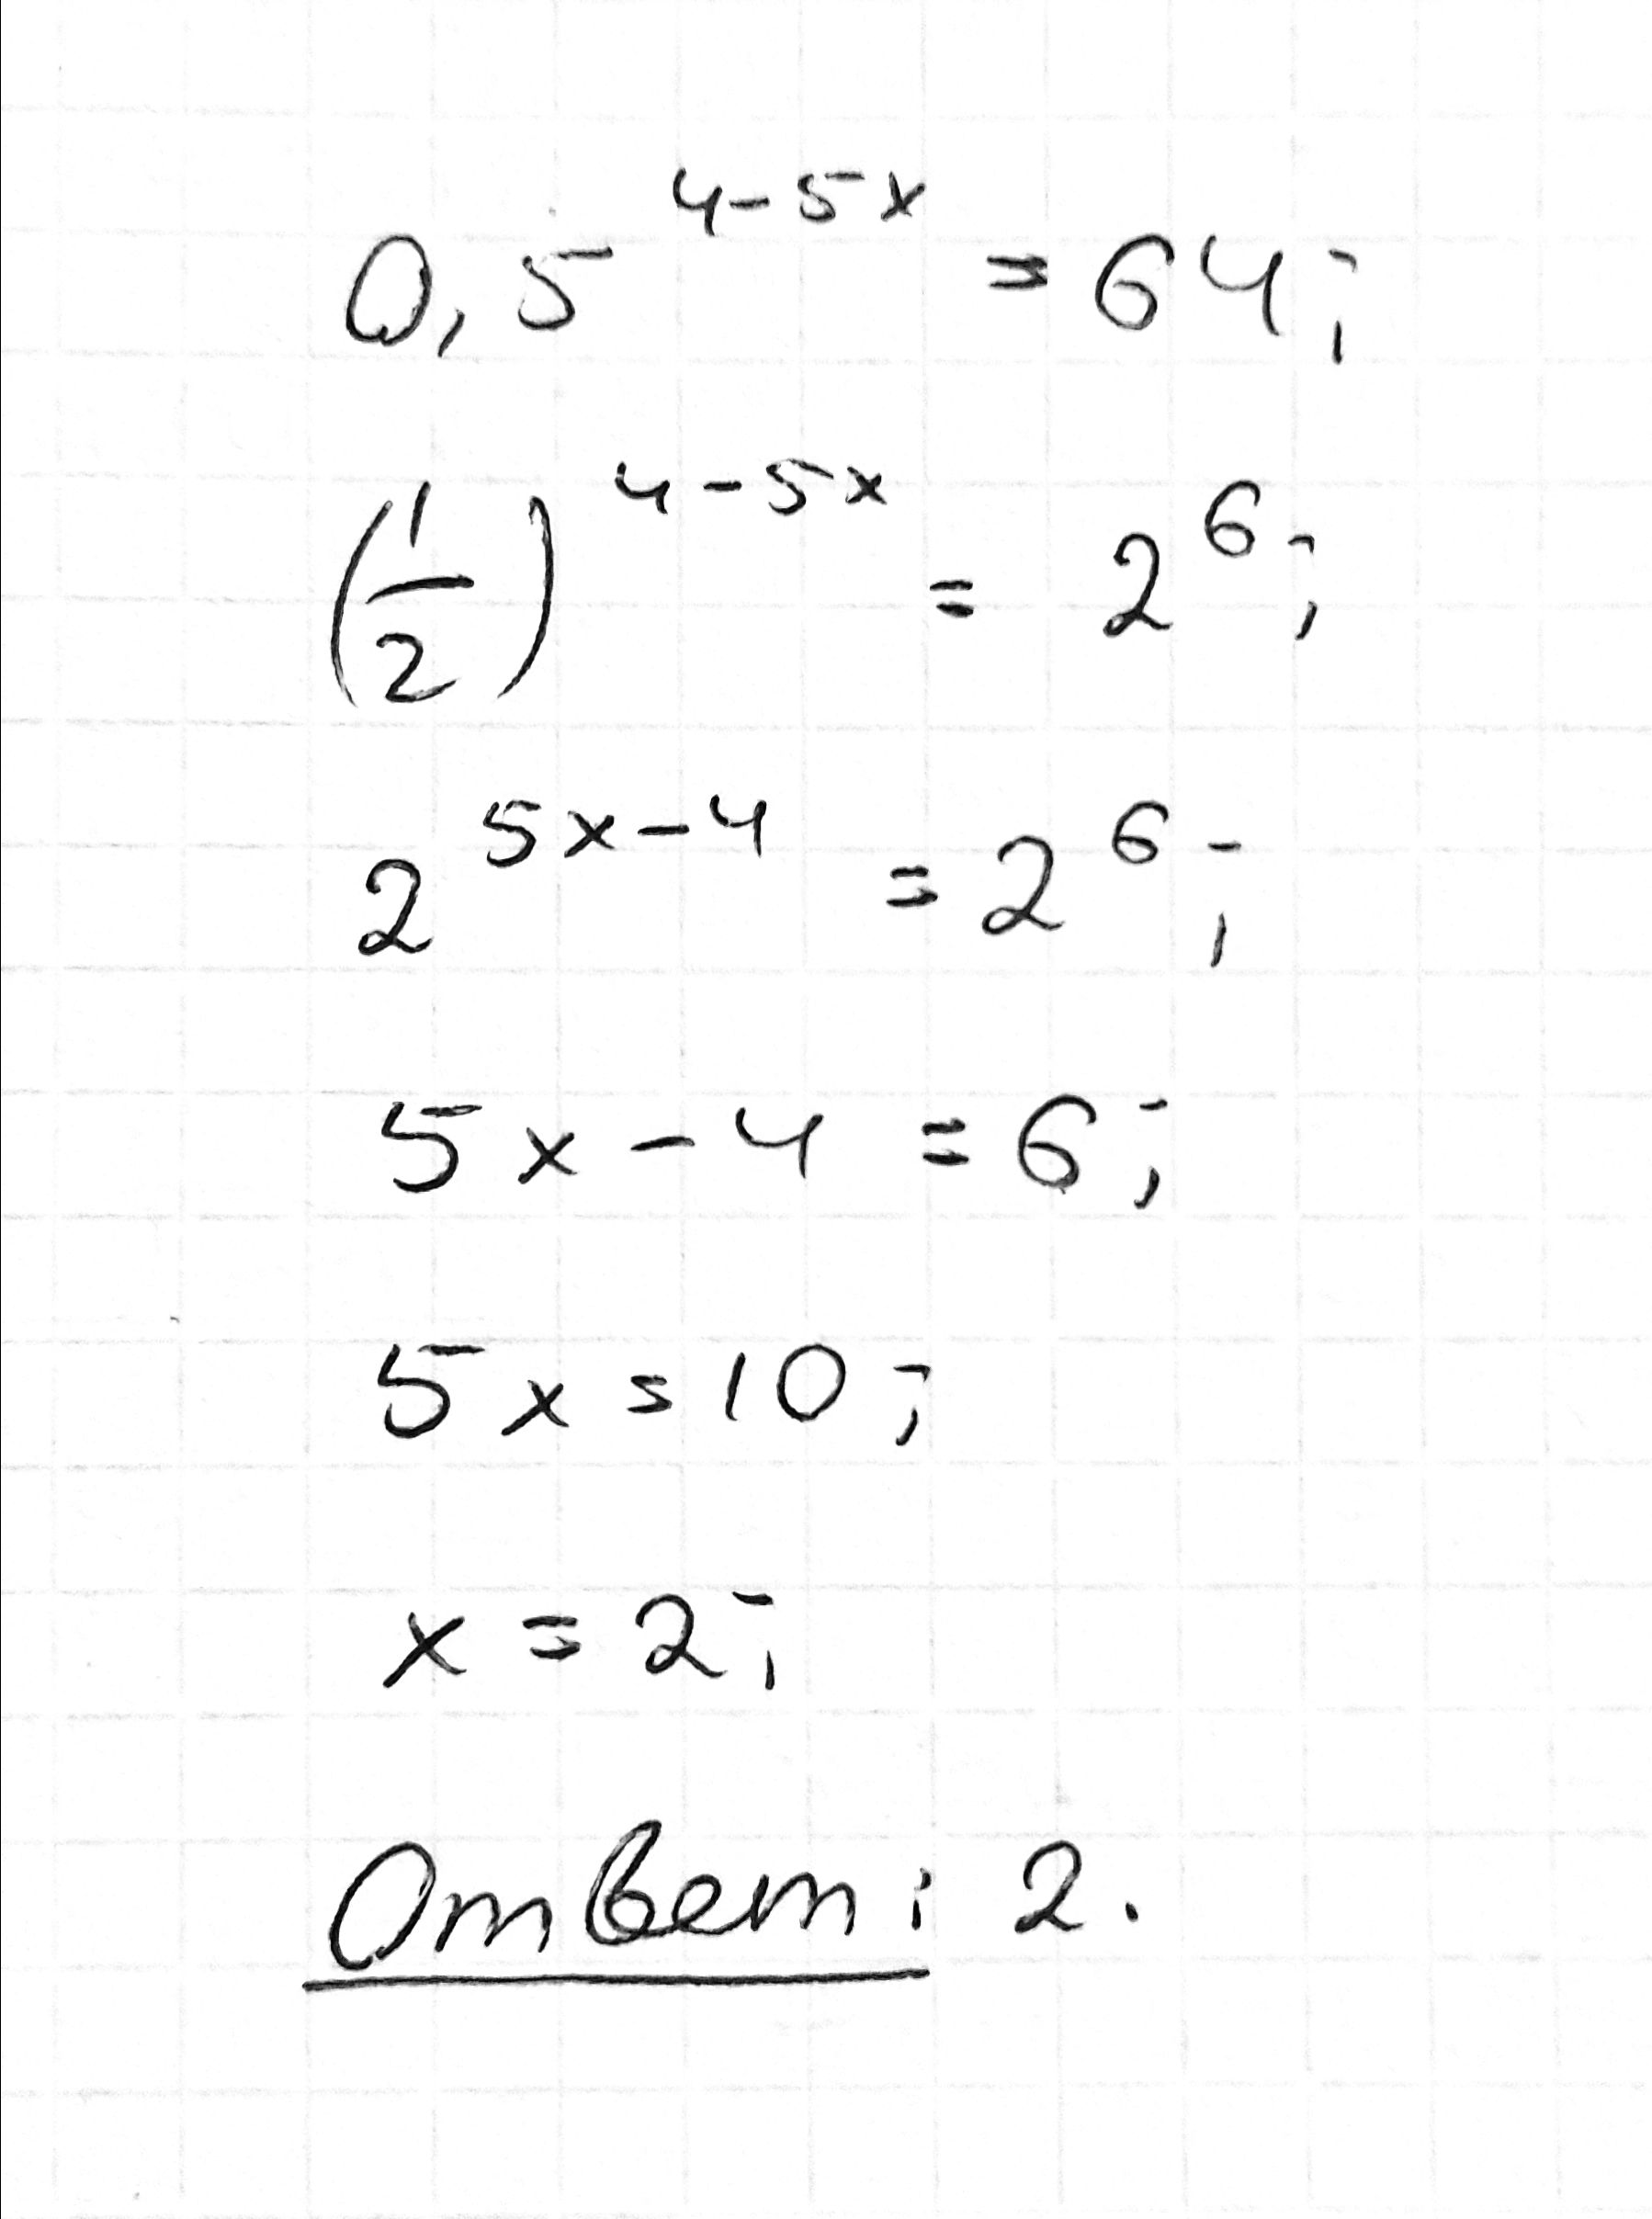 0,5^{4-5x} = 64;
(1/2)^{4-5x} = 2^6;
2^{5x-4} = 2^6;
5x - 4 = 6;
5x = 10;
x = 2;
Ответ: 2.